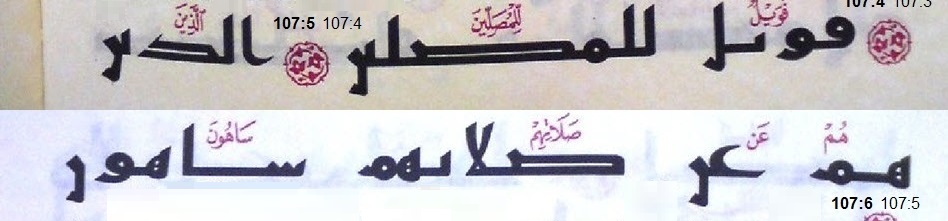 107:5 107:4 107:4 107:3
فَوَيْلٌ لِّلْمُصَلِّينَ الَّذِينَ
فويل للمصلين الذين
هُمْ عَن صَلَاتِهِمْ سَاهُونَ
هم عن صلاتهم ساهون
107:6 107:5